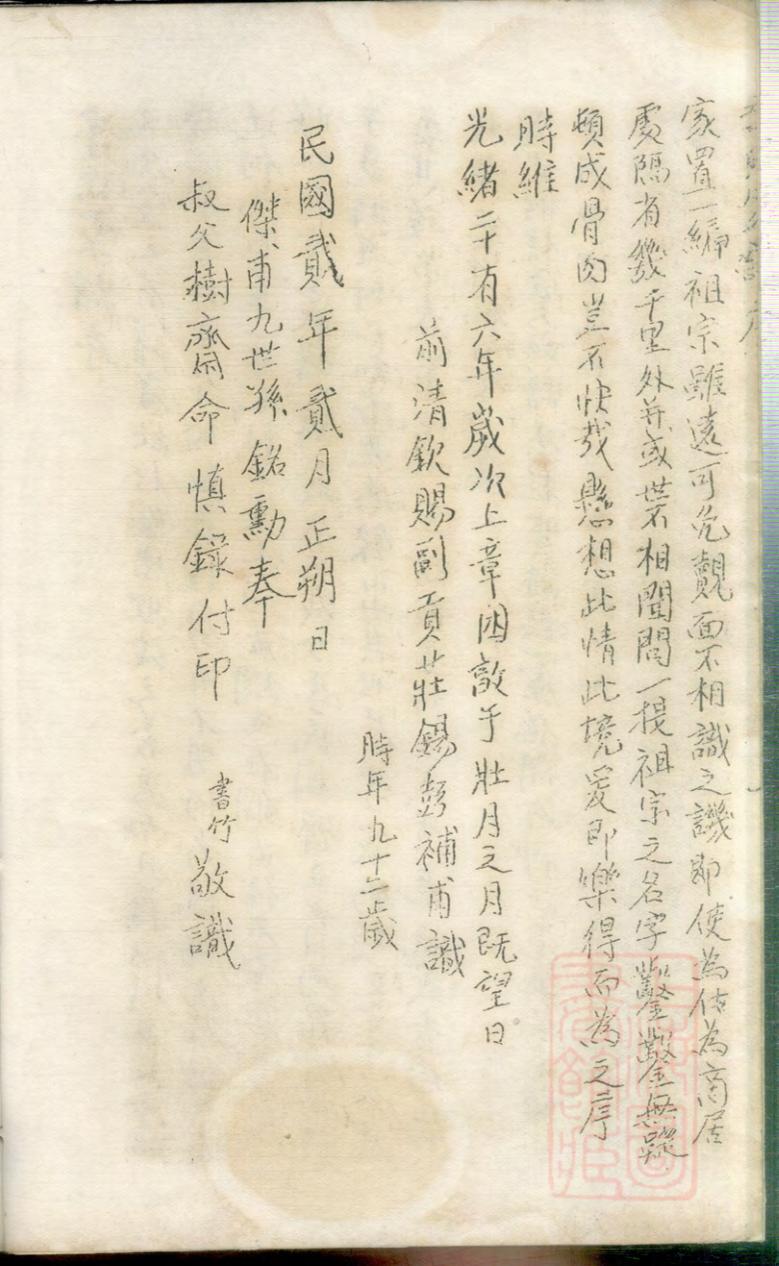 家置一編祖宗雖遠可免覿面不相識之譏即使為仕為商居
處隔省幾千里外并或世不相聞問一提祖宗之名字鑿鑿無疑
頓成骨肉豈不快哉懸想此情此境爰即樂得而為之序
時維
光緒二十有六年歲次上章困敦于壯月之月既望日
前清欽賜副貢莊錫彭補甫識
時年九十二歲
民國貳年貳月正朔日
傑甫九世孫銘勳奉
叔父樹齋命慎錄付印
書竹敬識